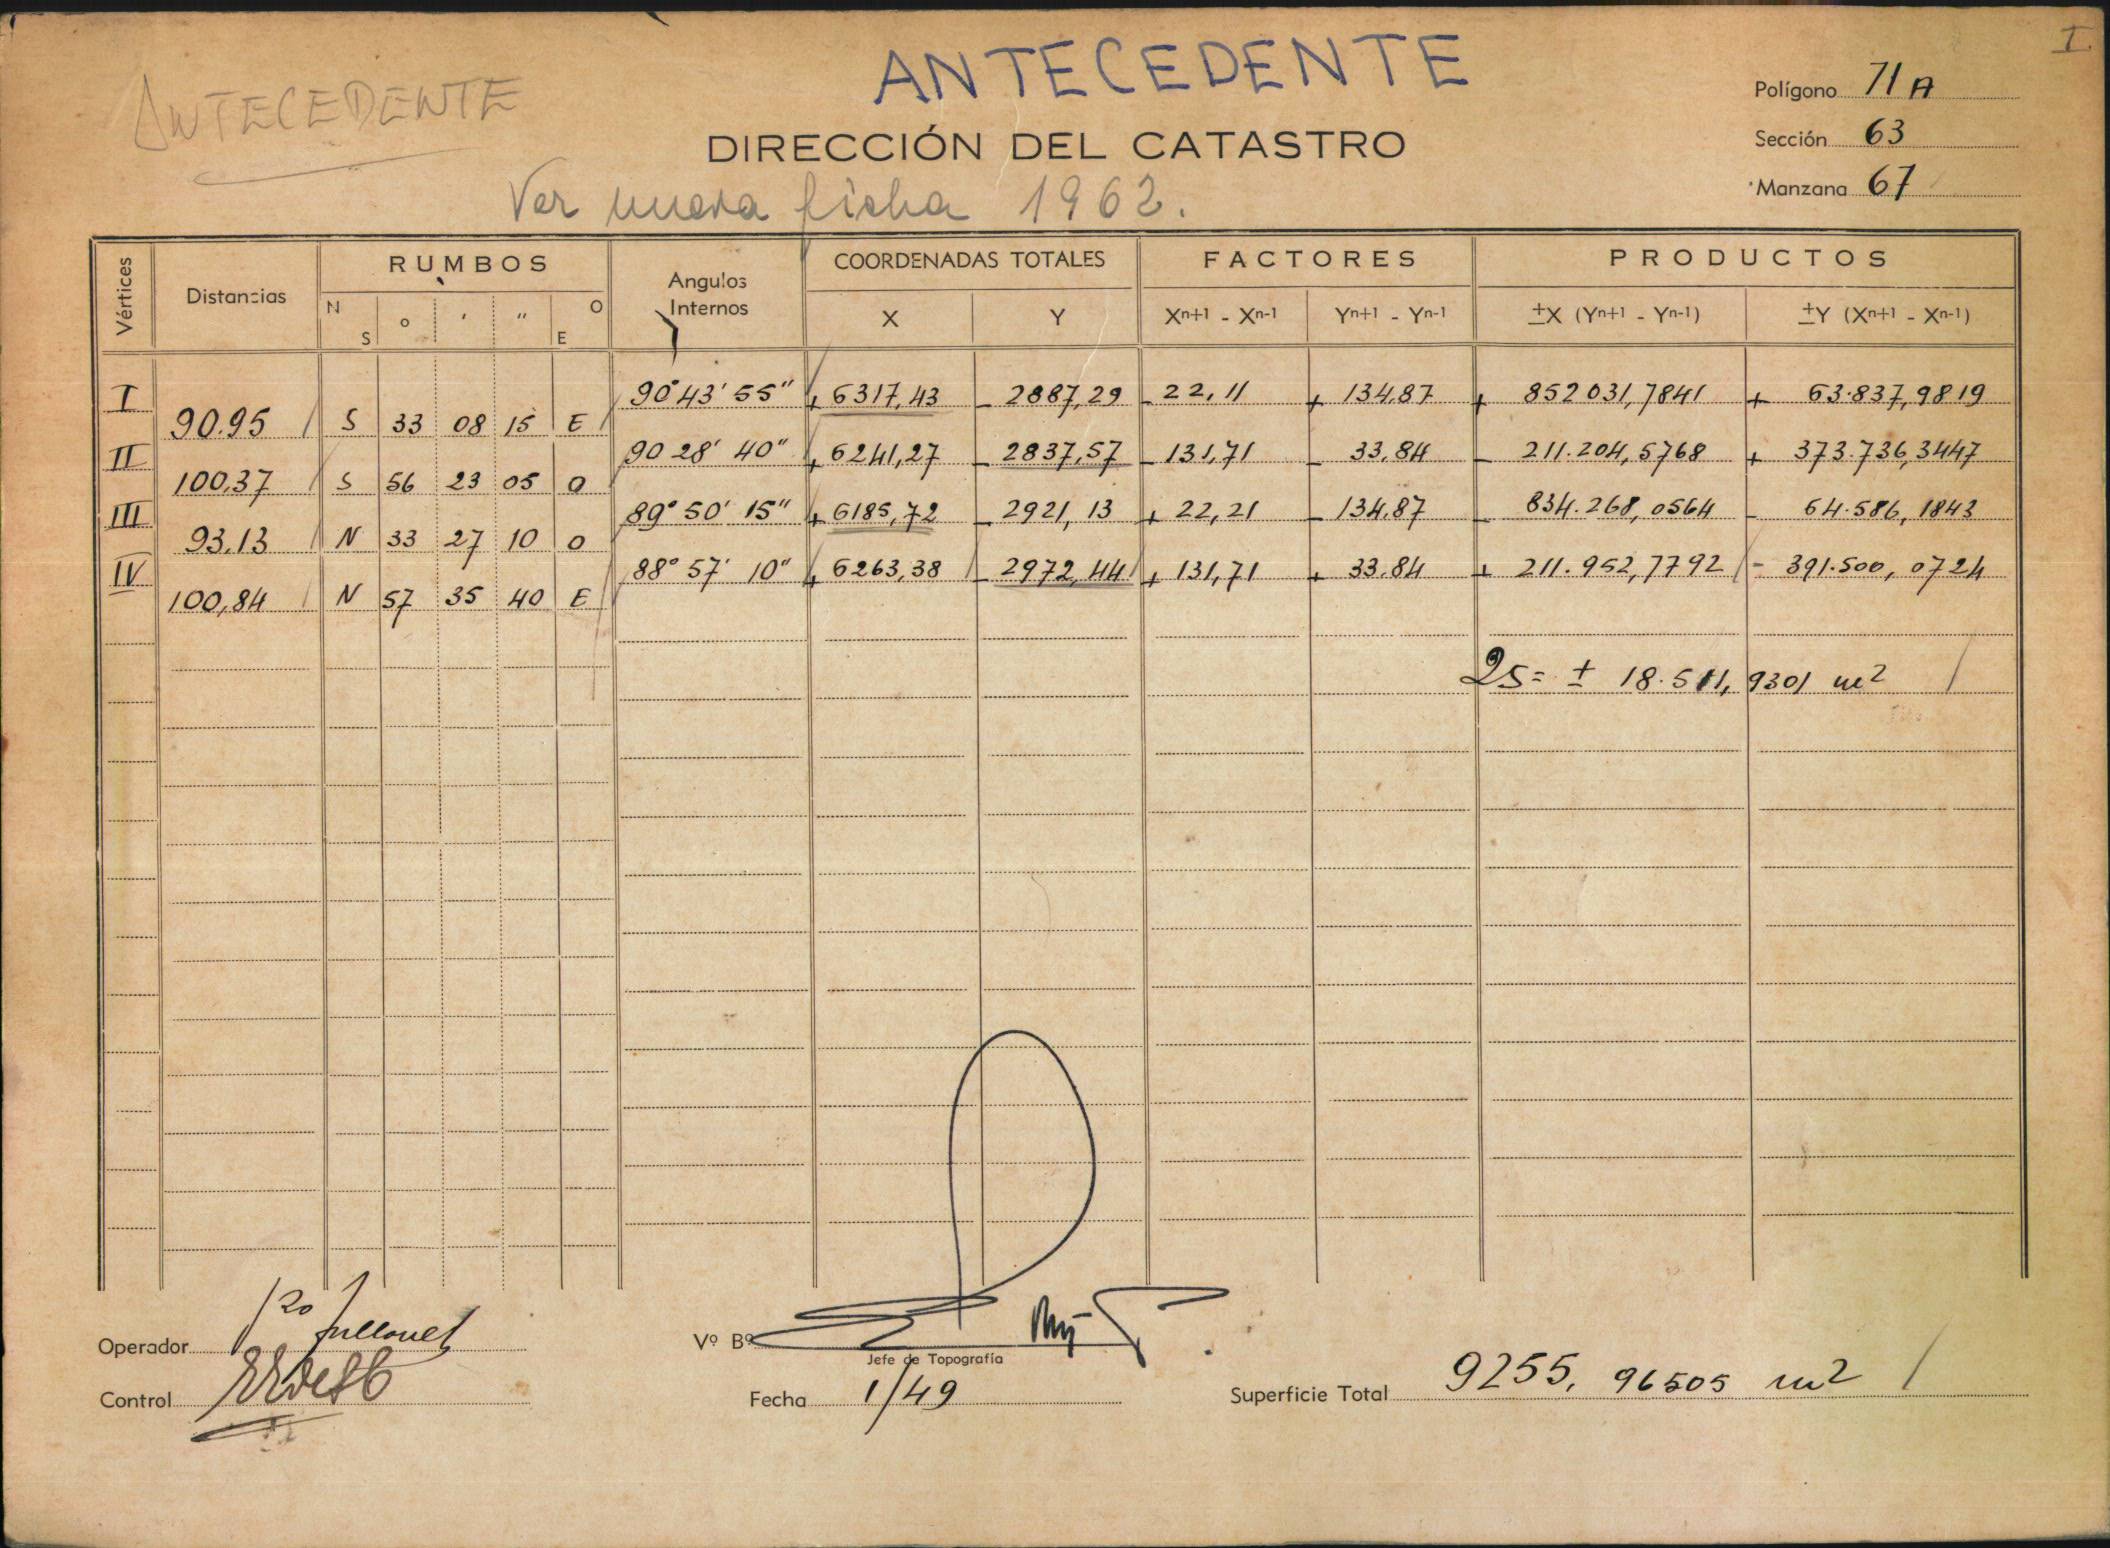 I
ANTECEDENTE
ANTECEDENTE
Polígono 71 A
DIRECCIÓN DEL CATASTRO
Sección 63
Ver nueva ficha 1962.
Manzana 67
Vértices Distancias RUMBOS Angulos Internos COORDENADAS TOTALES FACTORES PRODUCTOS
N S ° ' " O E X Y Xn+1 - Xn-1 Yn+1 - Yn-1 ±X (Yn+1 - Yn-1) ±Y (Xn+1 - Xn-1)
I 90° 43' 55" + 6317,43 - 2887,29 - 22,11 + 134,87 + 852 031,7841 + 63.837,9819
90.95 S 33 08 15 E
II 90 28' 40" + 6241,27 - 2837,57 - 131,71 - 33,84 - 211.204,5768 + 373.736,3447
100,37 S 56 23 05 O
III 89° 50' 15" + 6185,72 - 2921,13 + 22,21 - 134,87 - 834.268,0564 - 64.586,1843
93,13 N 33 27 10 O
IV 88° 57' 10" + 6263,38 - 2972,44 + 131,71 + 33,84 + 211.952,7792 - 391.500,0724
100,84 N 57 35 40 E
2S = ± 18.511,9301 m2
Operador
Vº Bº
Jefe de Topografía
Control
Fecha 1/49
Superficie Total 9255,96505 m2